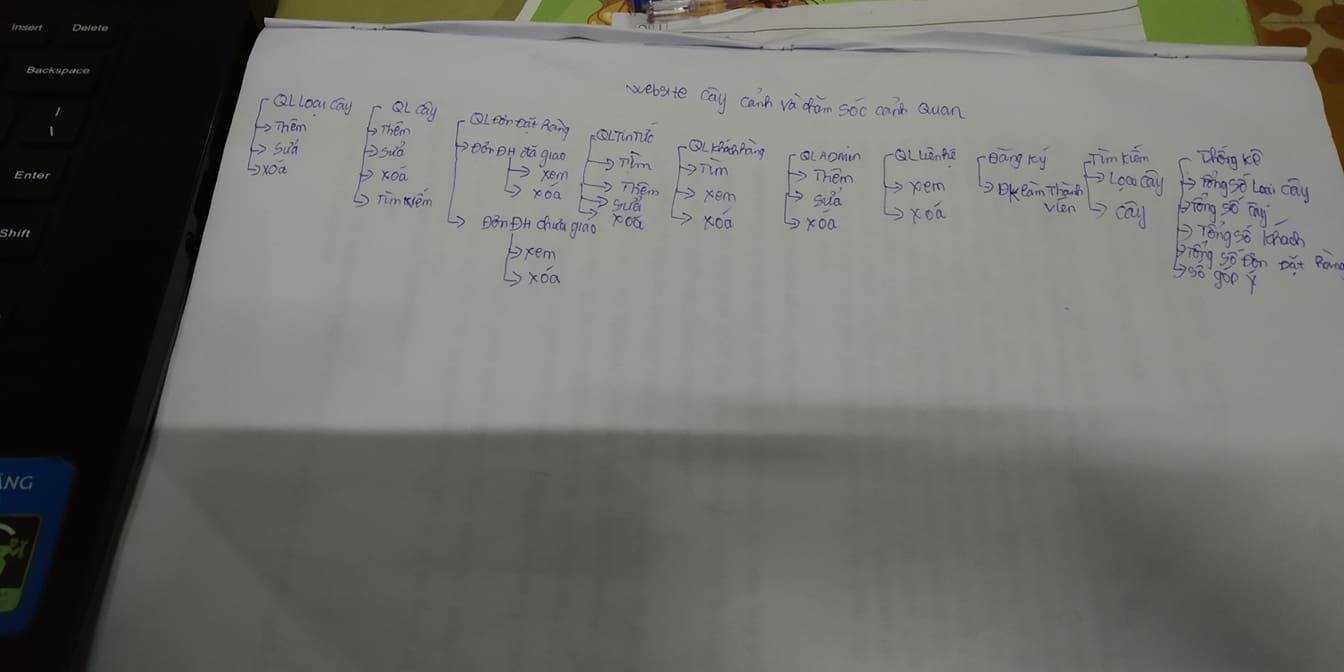 Insert Delete
Backspace
Enter
Shift
ING
website cây cảnh và chăm sóc cảnh quan
QL Loại cây
Thêm
Sửa
Xoá
QL cây
Thêm
Sửa
Xoá
Tìm kiếm
QL Đơn Đặt hàng
Đơn ĐH đã giao
xem
xóa
Đơn ĐH chưa giao
xem
xóa
QL Tin Tức
Tìm
Thêm
Sửa
xoá
QL khách hàng
Tìm
xem
xoá
QL ADMIN
Thêm
Sửa
xóa
QL Liên hệ
xem
xóa
Đăng ký
ĐK làm Thành
viên
Tìm kiếm
Loại cây
cây
Thống kê
Tổng số Loại cây
Tổng số cây
Tổng số khách
Tổng số Đơn Đặt hàng
Số góp ý